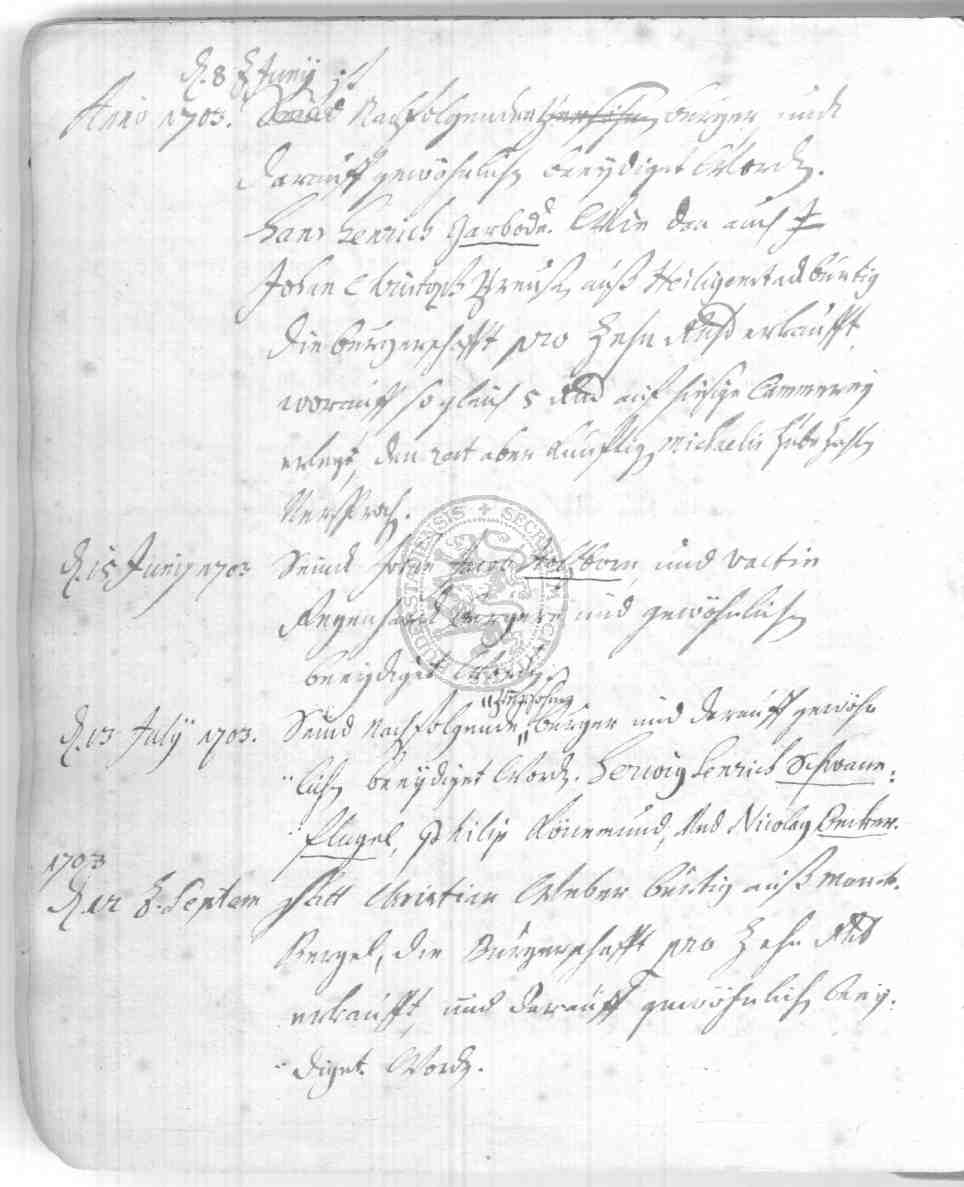 d. 8 t Junij
Anno 1703. Seind Nachfolgender burger und
darauff gewöhnlich beeydiget Word.
Hans Henrich Garbode. Wie den auch
Johan Christoph Preuß, auß Heiligenstad bürtig
die burgerschafft pro Zehn Rthl erkaufft
worauff so gleich 5 Rthl auf hiesige Cammerey
erlegt, den rest aber künfftig Michaelis
Versprach.
d. 15 Junij 1703 Seind und Valtin
Regenhard burgere und gewöhnlich
beeydiget Word.
d. 13 July 1703. Seind Nachfolgende burger und darauff gewöhn
lich beeydiget Word. Herwig Henrich Schwane=
flugel, Philip Könemund, Und Nicolay Becker.
1703
d. 12 t. Septem hatt Christian Weber bürtig auß
die Bürgerschafft pro Zehn Rthl
erkaufft, und darauff gewöhnlich beey=
diget Word.
SECRET